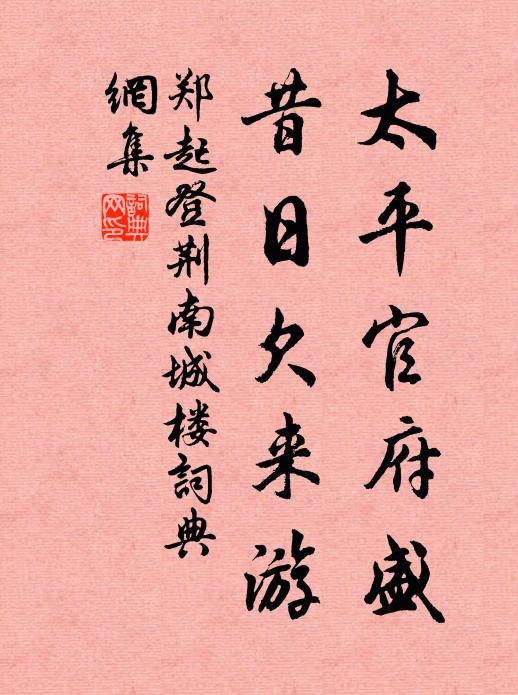 太平官府盛
昔日欠来游
郑起登荆南城楼詞典
網集
詞典
网印